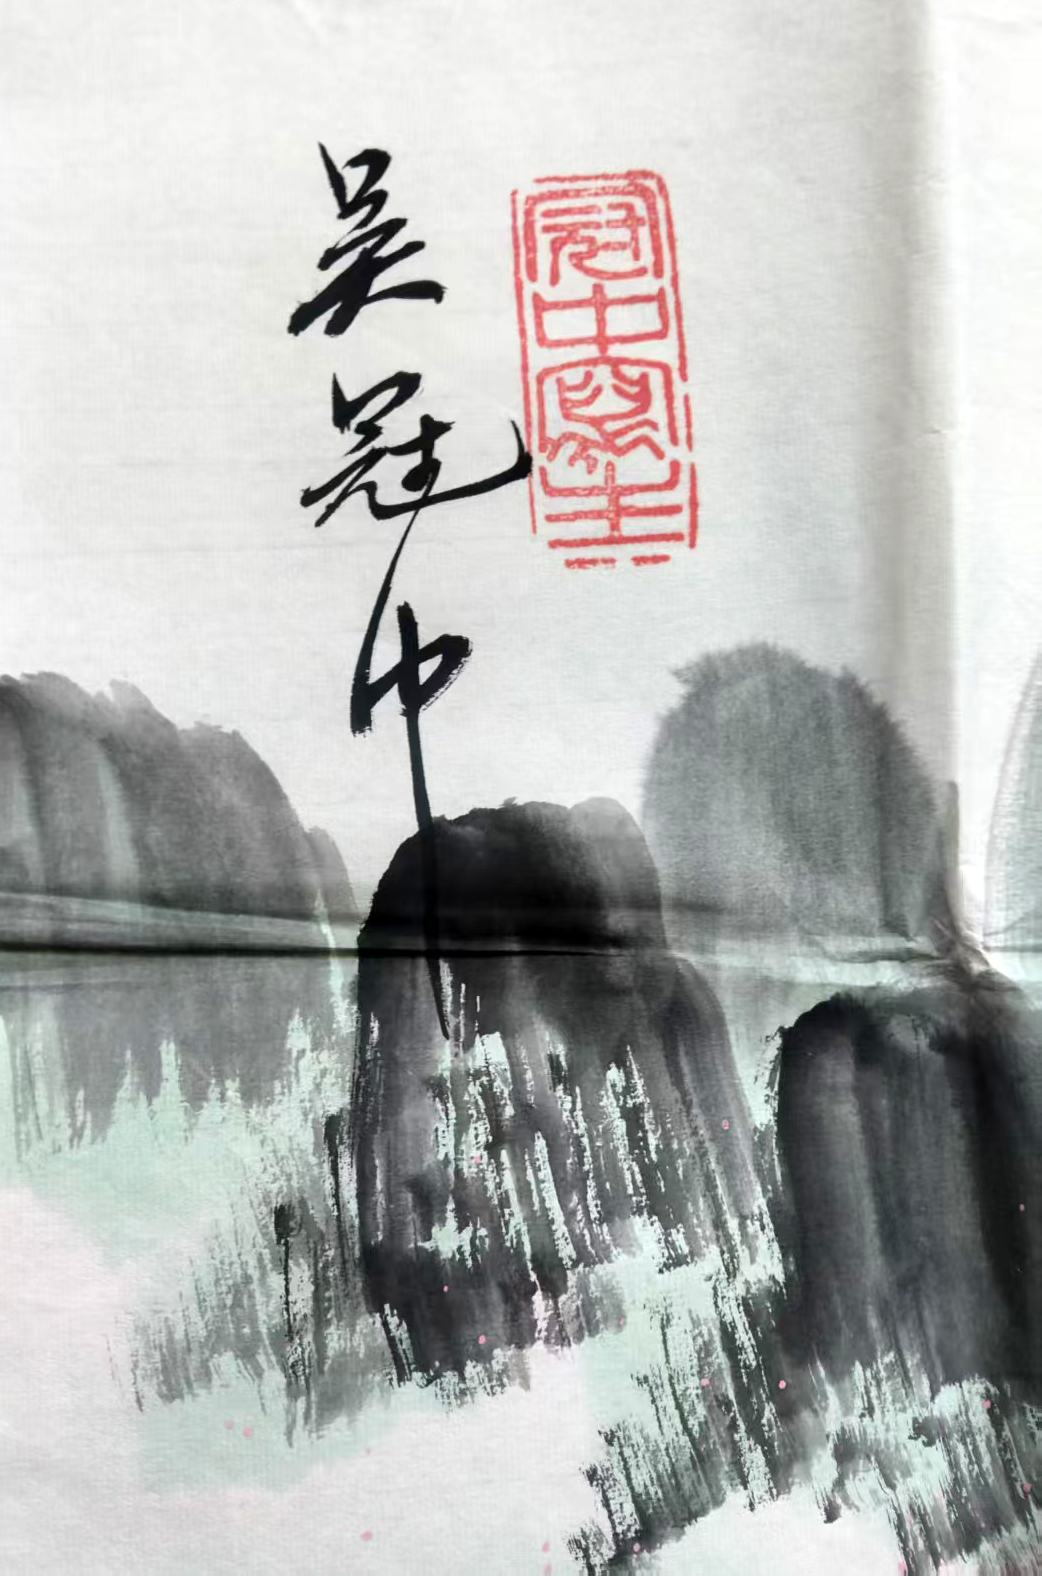 吴冠中
冠中寫生